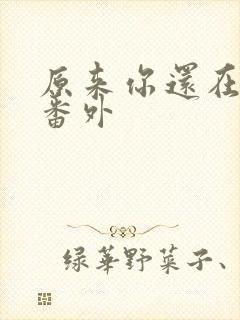 原来你還在
番外
绿華野菜子、